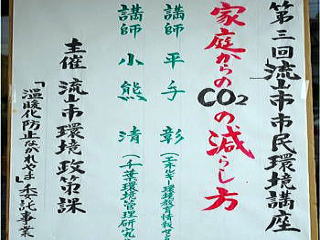 第三回流山市市民環境講座
家庭からのCO2の減らし方
講師 平手 彰(エネルギー・環境教育情報セ
講師 小熊 清(千葉環境管理研究
主催 流山市環境政策課
「温暖化防止ながれやま」委託事業